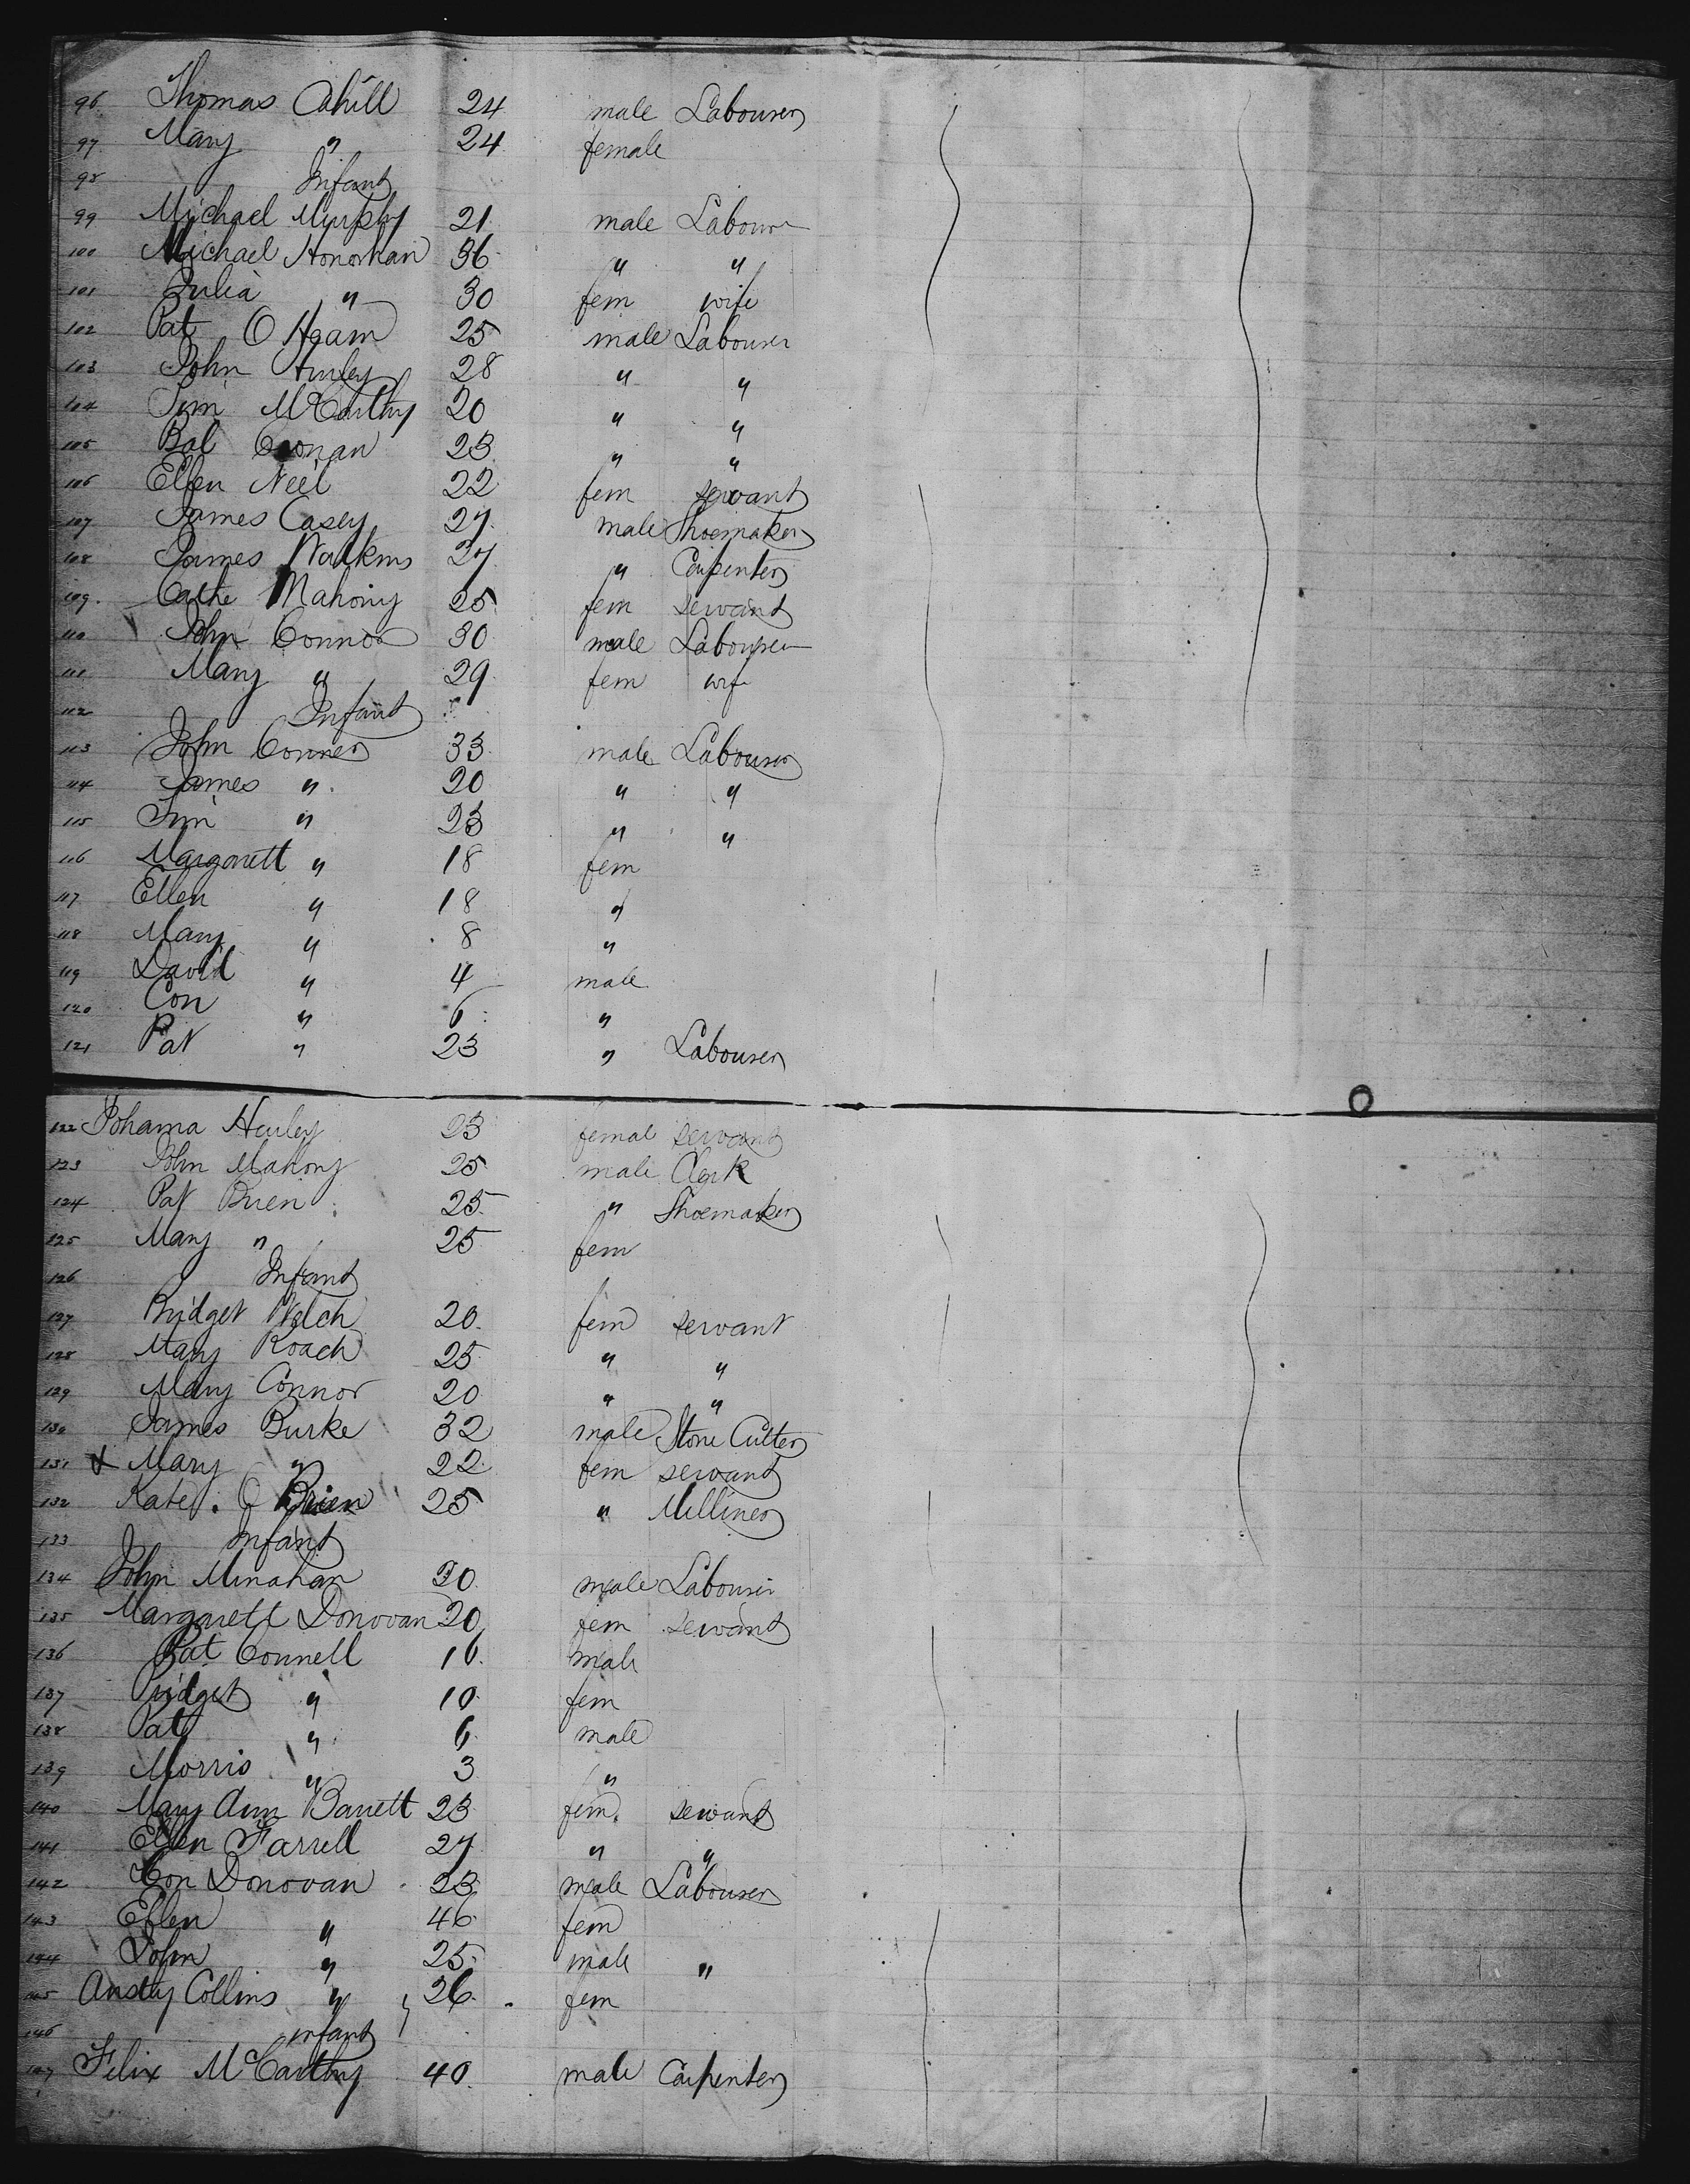 96 Thomas Cahill 24 male Labourer
97 Mary " 24 female
98 Infant
99 Michael Murphy 21 male Labourer
100 Michael Honorhan 36 " "
101 Julia " 30 fem wife
102 Pat O Hgam 25 male Labourer
103 John Hurley 28 " "
104 Tim McCarthy 20 " "
105 Bal Coonan 23 " "
106 Ellen Neil 22 fem servant
107 James Casey 27 male Shoemaker
108 James Walkins 27 " Carpenter
109 Cathe Mahony 25 fem servant
110 John Connor 30 male Labourer
111 Mary " 29 fem wife
112 Infant
113 John Conner 33 male Labourer
114 James " 20 " "
115 Tim " 23 " "
116 Margarett " 18 fem
117 Ellen " 18 "
118 Mary " 8 "
119 David " 4 male
120 Con " 6 "
121 Pat " 23 " Labourer
122 Johanna Hurley 23 female servant
123 John Mahony 25 male Clerk
124 Pat Brien 25 " Shoemaker
125 Mary " 25 fem
126 Infant
127 Bridget Welch 20 fem servant
128 Mary Roach 25 " "
129 Mary Connor 20 " "
130 James Burke 32 male Stone Cutter
131 x Mary " 22 fem servant
132 Kate O Brien 25 " Milliner
133 Infant
134 John Minahan 30 male Labourer
135 Margarett Donovan 20 fem servant
136 Pat Connell 16 male
137 Bridget " 10 fem
138 Pat " 6 male
139 Morris " 3 "
140 Mary Ann Barrett 23 fem servant
141 Ellen Farrell 27 " "
142 Con Donovan 23 male Labourer
143 Ellen " 46 fem
144 John " 25 male "
145 Ansty Collins " 26 fem
146 infant
147 Felix McCarthy 40 male Carpenter